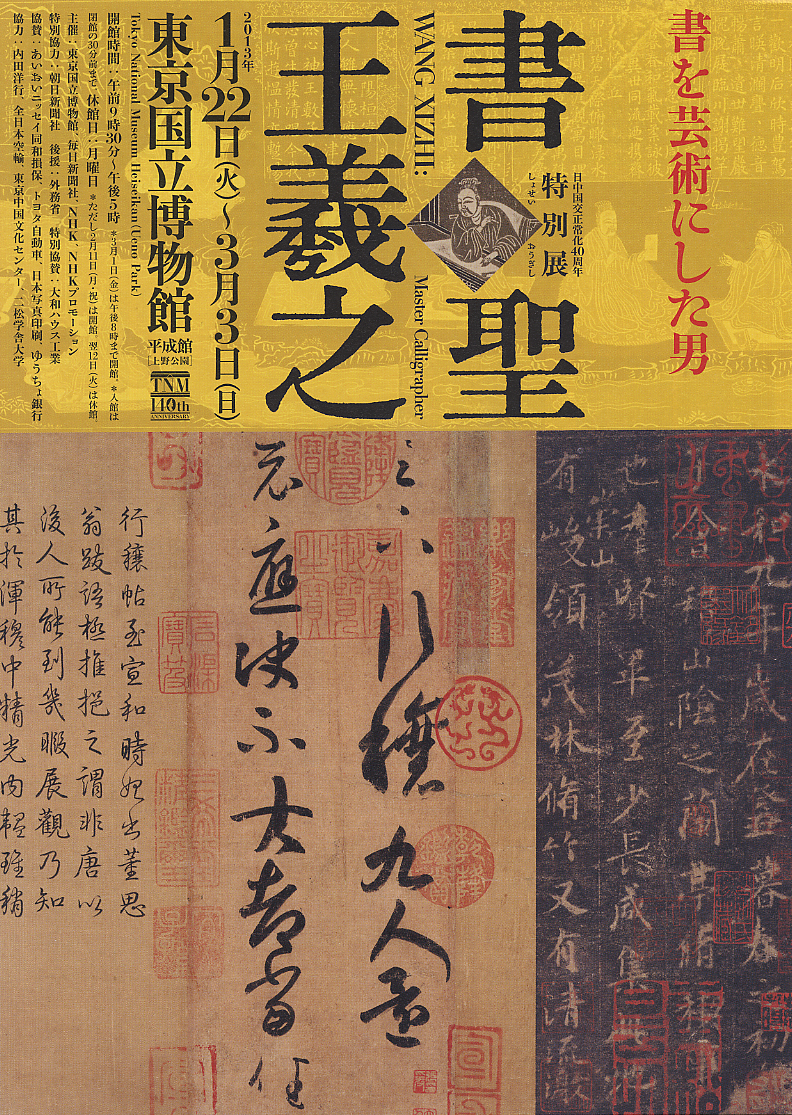 書を芸術にした男
日中国交正常化40周年
特別展
しょせい おうぎし
書聖
王羲之
WANG XIZHI:
Master Calligrapher
2013年
1月22日(火)〜3月3日(日)
東京国立博物館
平成館
[上野公園]
TNM
140th
ANNIVERSARY
Tokyo National Museum Heiseikan (Ueno Park)
開館時間:午前9時30分〜午後5時 *3月1日(金)は午後8時まで開館。*入館は
閉館の30分前まで 休館日:月曜日 *ただし2月11日(月・祝)は開館、翌12日(火)は休館
主催:東京国立博物館、毎日新聞社、NHK、NHKプロモーション
特別協力:朝日新聞社 後援:外務省 特別協賛:大和ハウス工業
協賛:あいおいニッセイ同和損保、トヨタ自動車、日本写真印刷、ゆうちょ銀行
協力:内田洋行、全日本空輸、東京中国文化センター、二松学舎大学
永和九年歳在癸丑暮春之初
会稽山陰之蘭亭脩稽
也羣賢畢至少長咸集此
崇山
有峻領茂林脩竹又有清流激
足下行穰九人還
示應決不大都當任
行穰帖至宣和時始出董思
翁跋語極推挹之謂非唐以
後人所能到幾暇展觀乃知
其於渾穆中精光内韞雖稍